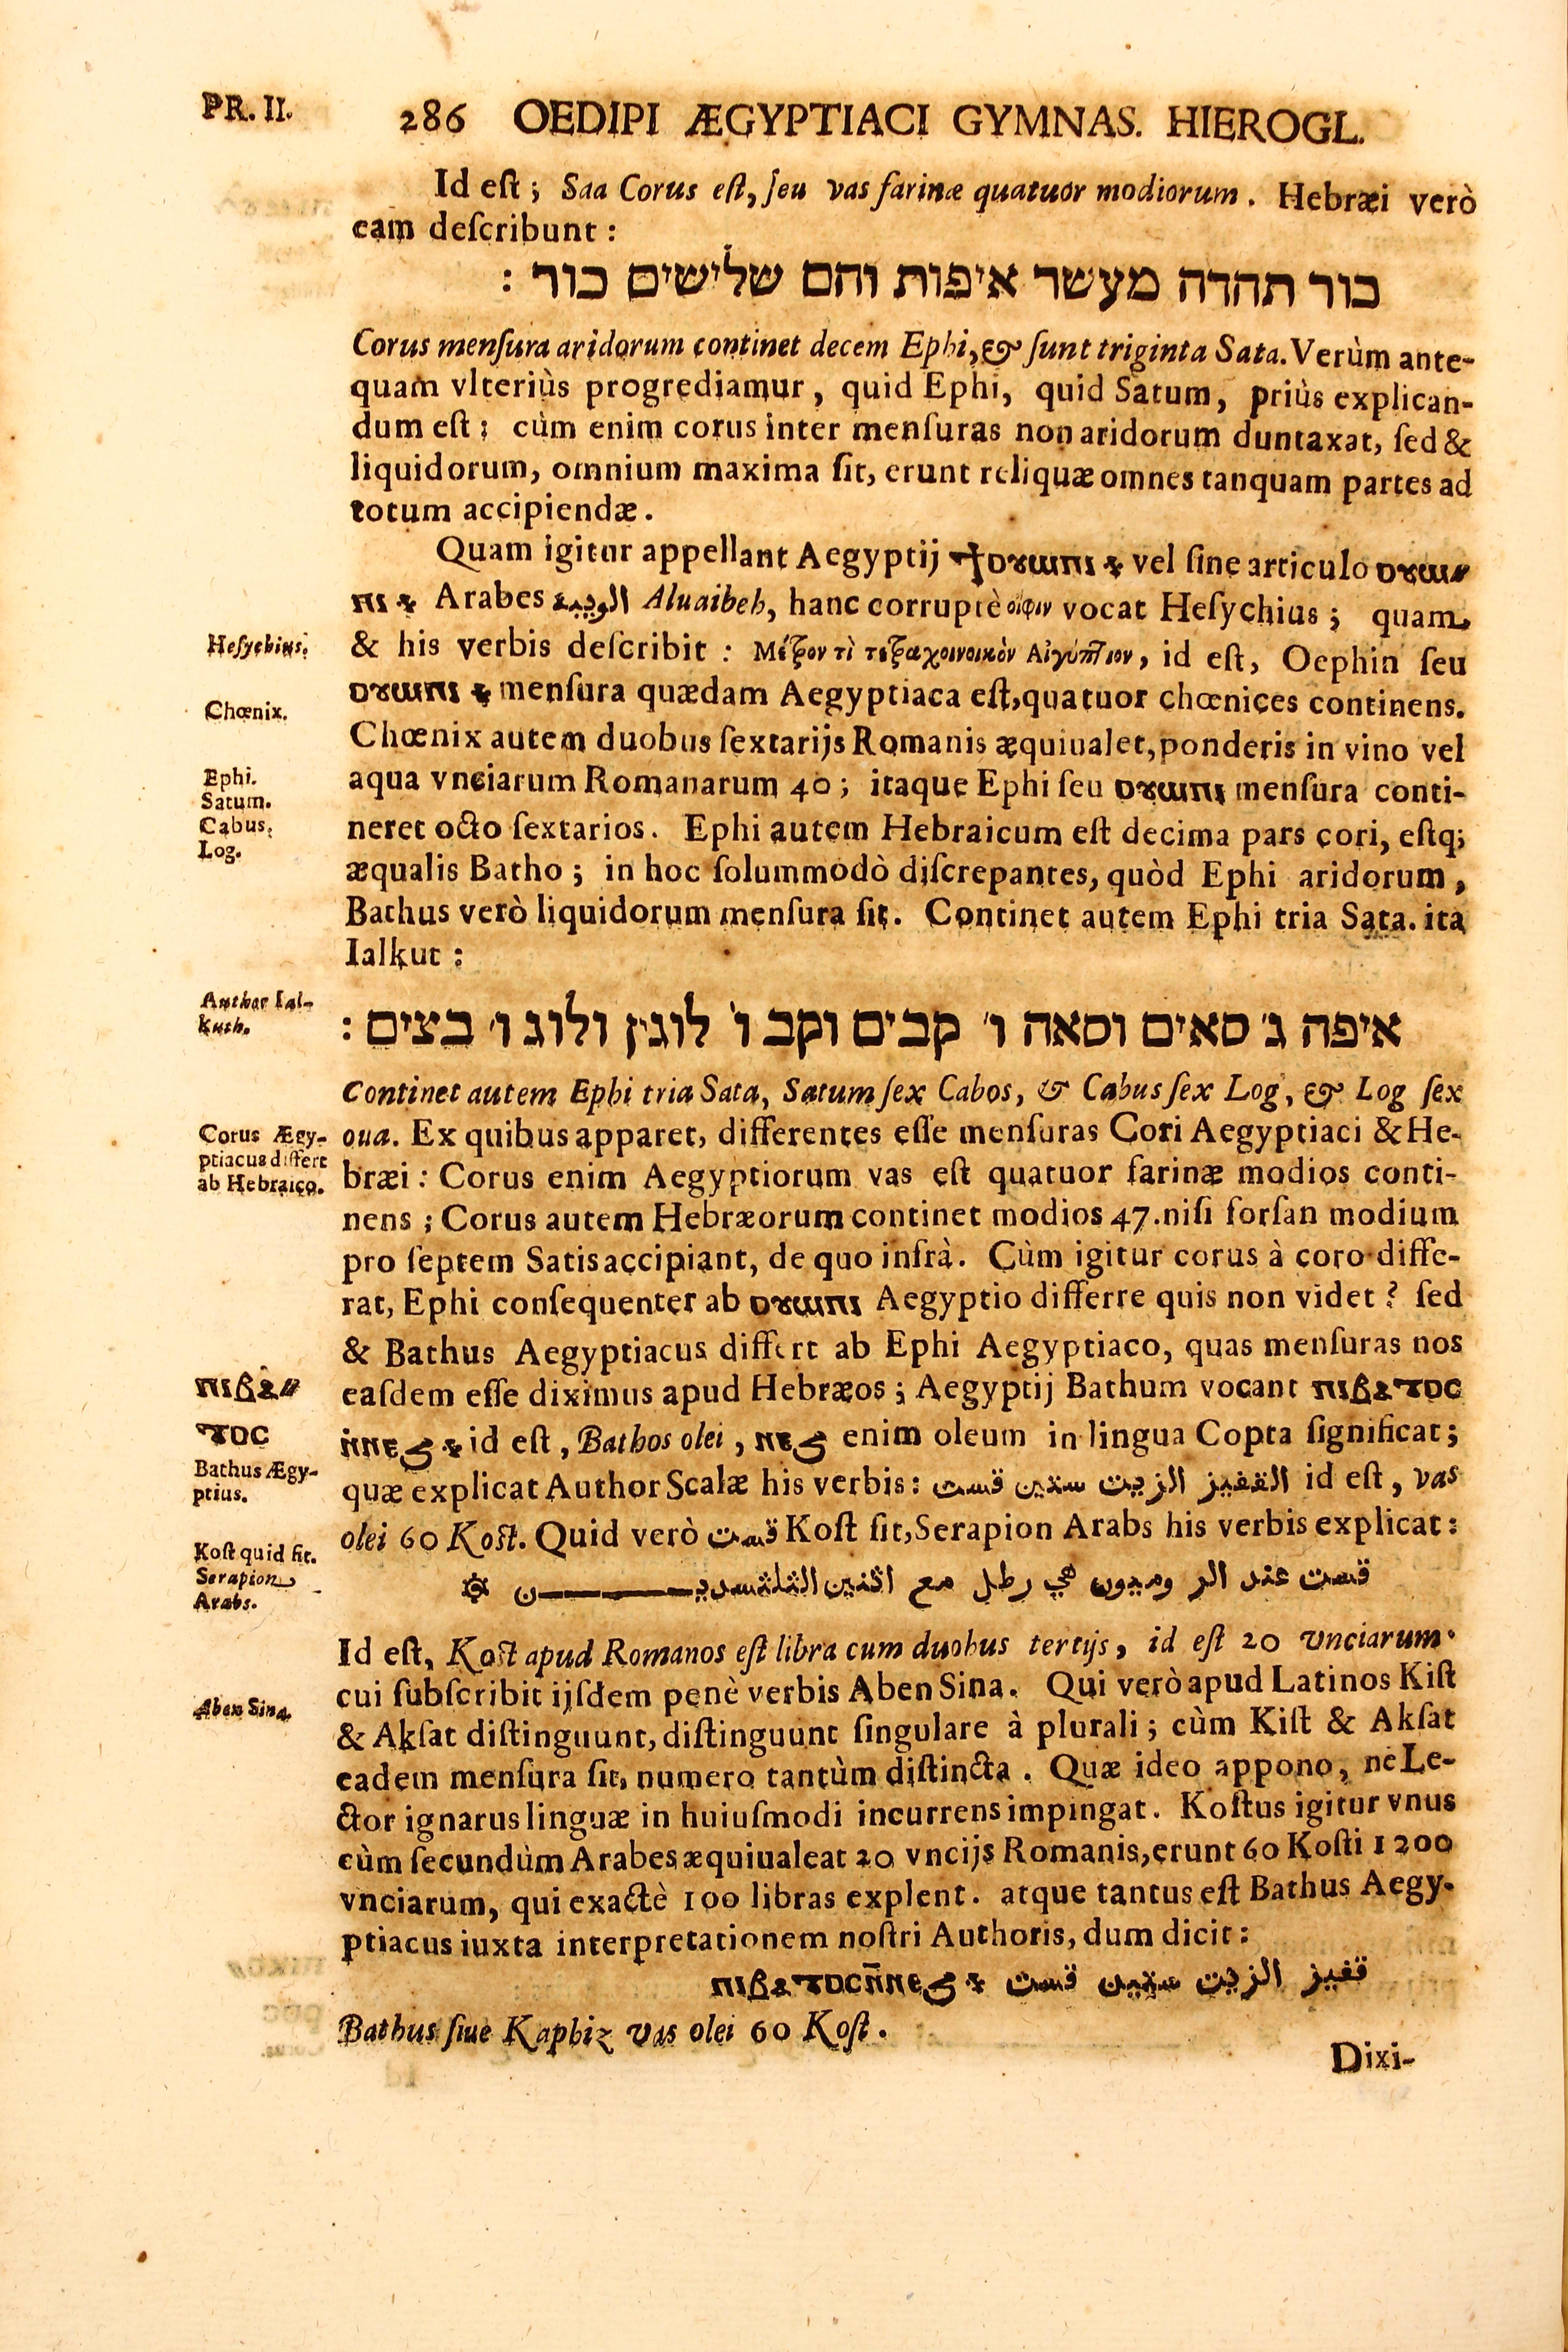 PR. II.
286 OEDIPI ÆGYPTIACI GYMNAS. HIEROGL.
Id eſt; Saa Corus eſt, ſeu vas farinæ quatuor modiorum. Hebræi verò
eam deſcribunt:
כור תהדה מעשר איפות והם שלישים כור :
Corus menſura aridorum continet decem Ephi, & ſunt triginta Sata. Verùm ante-
quam vlteriùs progrediamur, quid Ephi, quid Satum, priùs explican-
dum eſt; cùm enim corus inter menſuras non aridorum duntaxat, ſed &
liquidorum, omnium maxima ſit, erunt reliquæ omnes tanquam partes ad
totum accipiendæ.
Quam igitur appellant Aegyptij ϯⲟⲩⲱⲓⲡⲓ vel ſine articulo ⲟⲩⲱⲓ⸗
ⲡⲓ Arabes الويبة Aluaibeh, hanc corruptè οἰφιν vocat Heſychius; quam
Heſychius.
& his verbis deſcribit: Μέτρον τὶ τετραχοινοικὸν Αἰγύπτιον, id eſt, Oephin ſeu
ⲟⲩⲱⲓⲡⲓ menſura quædam Aegyptiaca eſt, quatuor chœnices continens.
Chœnix.
Chœnix autem duobus ſextarijs Romanis æquiualet, ponderis in vino vel
aqua vnciarum Romanarum 40; itaque Ephi ſeu ⲟⲩⲱⲓⲡⲓ menſura conti-
Ephi.
Satum.
Cabus.
Log.
neret octo ſextarios. Ephi autem Hebraicum eſt decima pars cori, eſtq;
æqualis Batho; in hoc ſolummodò diſcrepantes, quòd Ephi aridorum,
Bathus verò liquidorum menſura ſit. Continet autem Ephi tria Sata. ita
Ialkut:
Author Ial-
kuth.
איפה ג׳ סאים וסאה ו׳ קבים וקב ו׳ לוגין ולוג ו׳ בצים :
Continet autem Ephi tria Sata, Satum ſex Cabos, & Cabus ſex Log, & Log ſex
Corus Ægy-
ptiacus differt
ab Hebraico.
oua. Ex quibus apparet, differentes eſſe menſuras Cori Aegyptiaci & He-
bræi: Corus enim Aegyptiorum vas eſt quatuor farinæ modios conti-
nens; Corus autem Hebræorum continet modios 47. niſi forſan modium
pro ſeptem Satis accipiant, de quo infrà. Cùm igitur corus à coro diffe-
rat, Ephi conſequenter ab ⲟⲩⲱⲓⲡⲓ Aegyptio differre quis non videt? ſed
& Bathus Aegyptiacus differt ab Ephi Aegyptiaco, quas menſuras nos
ⲡⲓⲃⲁ⸗
ⲧⲟⲥ
Bathus Ægy-
ptius.
eaſdem eſſe diximus apud Hebræos; Aegyptij Bathum vocant ⲡⲓⲃⲁⲧⲟⲥ
ⲛ̀ⲛⲉϩ id eſt, Bathos olei, ⲛⲉϩ enim oleum in lingua Copta ſignificat;
quæ explicat Author Scalæ his verbis: القفيز الزيت ستين قست id eſt, vas
olei 60 Koſt. Quid verò قست Koſt ſit, Serapion Arabs his verbis explicat:
Koſt quid ſit.
Serapion
Arabs.
قست عند الر وميون هي رطل مع اثنين الثلثسديـــن
Id eſt, Koſt apud Romanos eſt libra cum duobus tertijs, id eſt 20 vnciarum.
Aben Sina.
cui ſubſcribit ijſdem penè verbis Aben Sina. Qui verò apud Latinos Kiſt
& Akſat diſtinguunt, diſtinguunt ſingulare à plurali; cùm Kiſt & Akſat
eadem menſura ſit, numero tantùm diſtincta. Quæ ideo appono, ne Le-
ctor ignarus linguæ in huiuſmodi incurrens impingat. Koſtus igitur vnus
cùm ſecundùm Arabes æquiualeat 20 vncijs Romanis, erunt 60 Koſti 1200
vnciarum, qui exactè 100 libras explent. atque tantus eſt Bathus Aegy-
ptiacus iuxta interpretationem noſtri Authoris, dum dicit:
ⲡⲓⲃⲁⲧⲟⲥⲛ̄ⲛⲉϩ قفيز الزيت ستين قست
Bathus ſiue Kaphiz vas olei 60 Koſt.
Dixi-